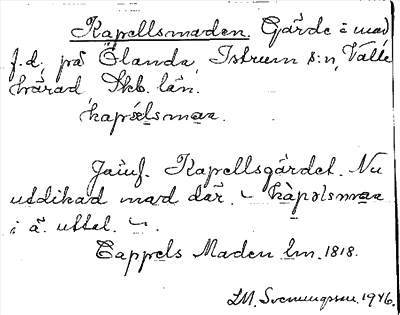 Kapellsmaden. Gärde i mad
f.d. på Ölanda, Istrum s:n, Valle
härad Skb. län.
kapə́lsmaa.
Jämf. Kapellsgärdet. Nu
uddikad mad där. ~ kàpəlsmaa
i ä. uttal. ~.
Cappels Maden lm. 1818.
LM. Svenungsson. 1946.